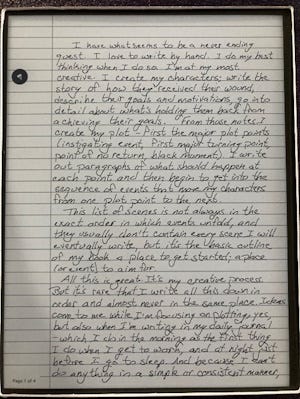 I have what seems to be a never ending
quest. I love to write by hand. I do my best
thinking when I do so. I'm at my most
creative. I create my characters; write the
story of how they received their wound,
describe their goals and motivations, go into
detail about what's holding them back from
achieving their goals. From those notes I
create my plot. First the major plot points
(instigating event, First major turning point,
point of no return, black moment). I write
out paragraphs of what should happen at
each point and then begin to get into the
sequence of events that move my characters
from one plot point to the next.
This list of scenes is not always in the
exact order in which events unfold, and
they usually don't contain every scene I will
eventually write, but it's the basic outline
of my book a place to get started; a place
(or event) to aim for.
All this is great. It's my creative process.
But it's rare that I write all this down in
order and almost never in the same place. Ideas
come to me while I'm focusing on plotting, yes,
but also when I'm writing in my daily journal
- which I do in the morning as the first thing
I do when I get to work, and at Night just
before I go to sleep. And because I can't
do anything in a simple or consistent manner,
Page 1 of 4